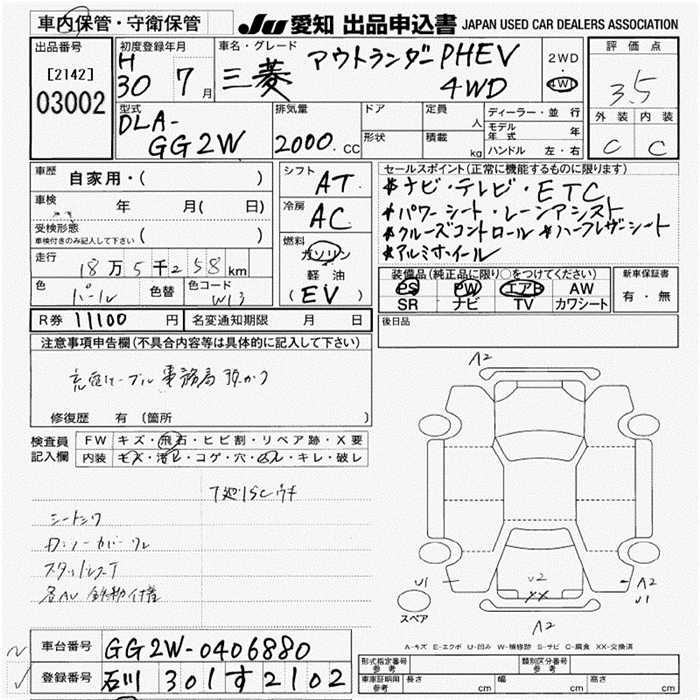 車内保管・守衛保管
JU 愛知 出品申込書 JAPAN USED CAR DEALERS ASSOCIATION
出品番号
[2142]
03002
初度登録年月
H
30 7 月
車名・グレード
三菱
アウトランダーPHEV
4WD
2WD
4WD
評価点
3.5
外装 内装
C C
型式
DLA-
GG2W
排気量
2000.CC
ドア
形状
定員
人
積載
kg
ディーラー・並行
モデル年式 年
ハンドル 左・右
車歴
自家用・( )
車検
年 月( 日)
受検形態
車検付きのみ記入して下さい
( )
走行
18万5千258km
色
パール
色替
色コード
W13
シフト
AT
冷房
AC
燃料
ガソリン
軽油
(EV)
セールスポイント(正常に機能するものに限ります)
*ナビ・テレビ・ETC
*パワーシート・レーンアシスト
*クルーズコントロール *ハーフレザーシート
*アルミホイール
装備品(純正品に限り○をつけてください)
PS PW エアB AW
SR ナビ TV カワシート
新車保証書
有・無
R券 11100 円
名変通知期限 月 日
後日品
注意事項申告欄(不具合内容等は具体的に記入して下さい)
充電ケーブル事務局預かり
修復歴 有 (箇所 )
検査員
記入欄
FW キズ・飛石・ヒビ割・リペア跡・X要
内装 キズ・汚レ・コゲ・穴・スレ・キレ・破レ
シートシワ
A2
U1
U2
XX
A2
U1
A2
スペア
A-キズ E-エクボ U-凹み W-補修跡 S-サビ C-腐食 XX-交換済
車台番号 GG2W-0406880
登録番号 石川 301 す 2102
形式指定番号
参考
類別区分番号
参考
車庫証明用
参考
長さ cm
幅 cm
高さ cm